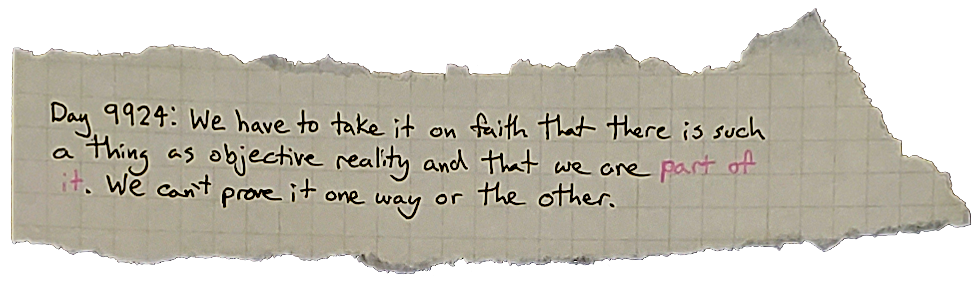 Day 9924: We have to take it on faith that there is such
a thing as objective reality and that we are part of
it. We can't prove it one way or the other.